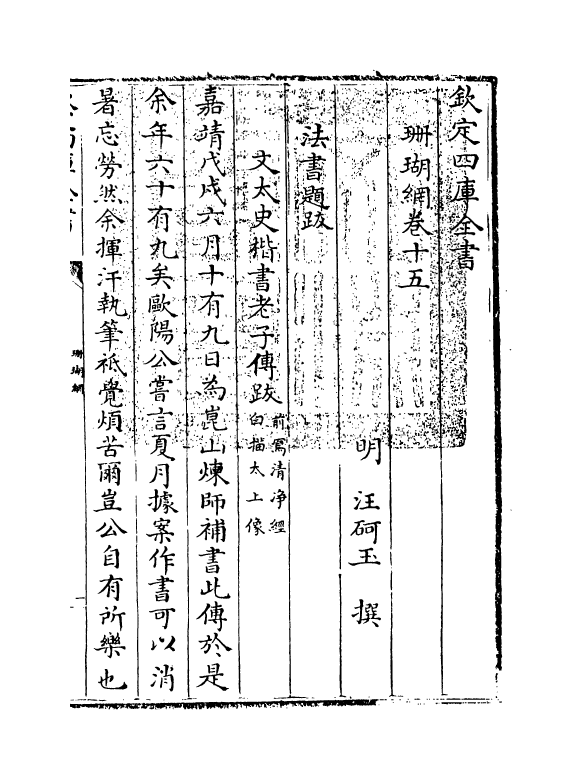 欽定四庫全書
珊瑚網卷十五
明 汪砢玉 撰
法書題跋
文太史楷書老子傳跋前寫清净經
白描太上像
嘉靖戊戌六月十有九日為崑山煉師補書此傳於是
余年六十有九矣歐陽公嘗言夏月據案作書可以消
暑忘勞然余揮汗執筆祗覺煩苦爾豈公自有所樂也
珊瑚網